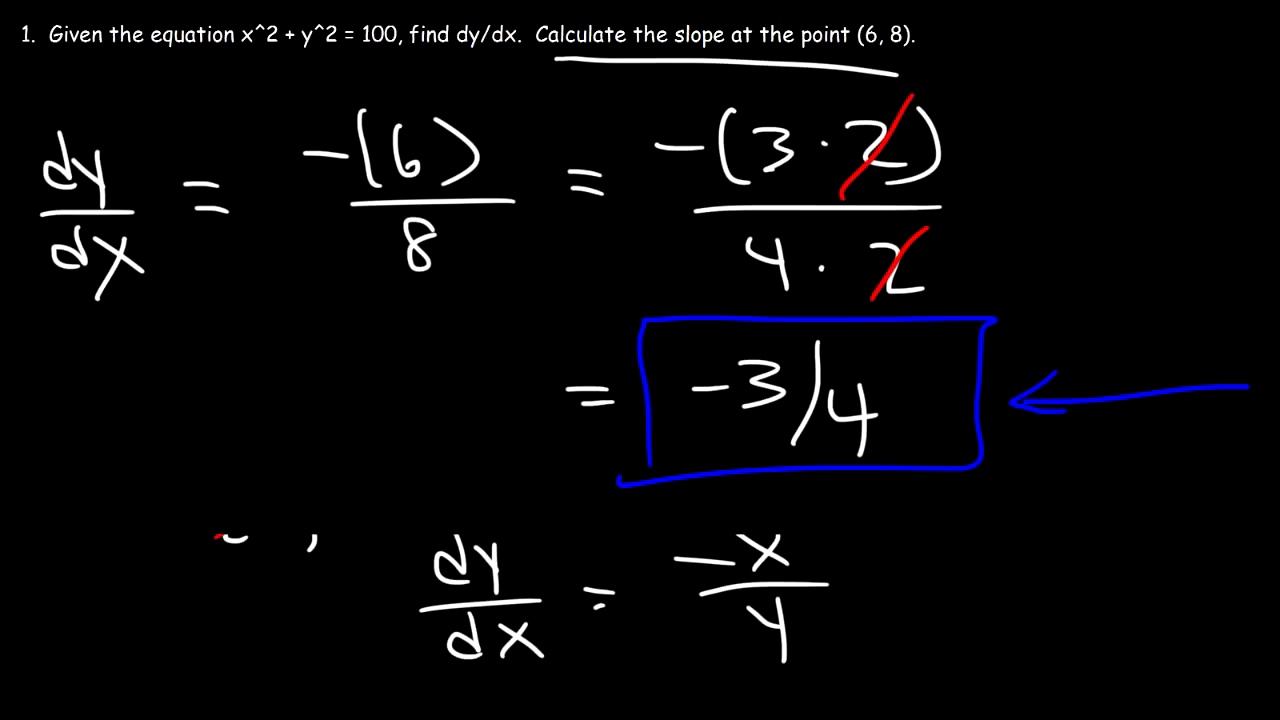 1. Given the equation x^2 + y^2 = 100, find dy/dx. Calculate the slope at the point (6, 8).
dy/dx = -(6)/8 = -(3 · 2)/(4 · 2)
= -3/4
dy/dx = -x/y